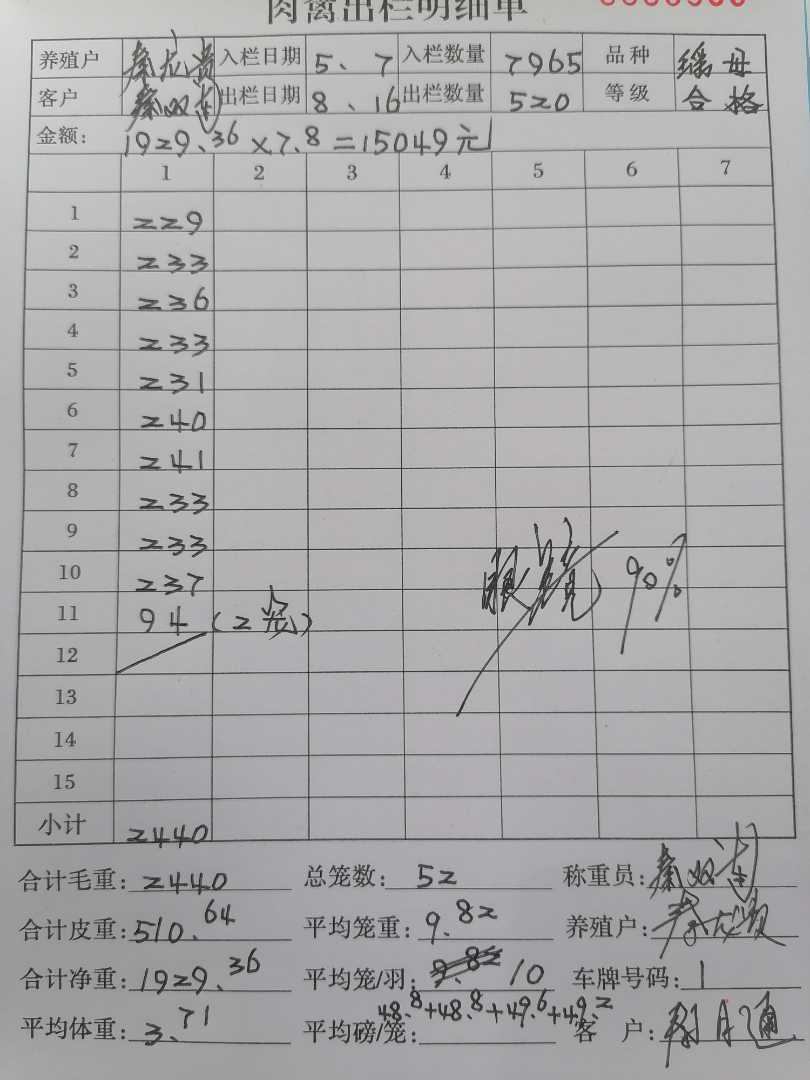 肉禽出栏明细单
养殖户 秦龙贵 入栏日期 5、7 入栏数量 7965 品种 瑶母
客户 秦双 出栏日期 8、16 出栏数量 520 等级 合格
金额: 1929.36×7.8=15049元
1 2 3 4 5 6 7
1 229
2 233
3 236
4 233
5 231
6 240
7 241
8 233
9 233
10 237
11 94 (2笼)
12
13
14
15
90%
小计 2440
合计毛重: 2440 总笼数: 52 称重员: 秦双
合计皮重: 510.64 平均笼重: 9.82 养殖户: 秦龙贵
合计净重: 1929.36 平均笼/羽: 10 车牌号码:
平均体重: 3.71 平均磅/笼: 48.8+48.8+49.6+49.2 客户: